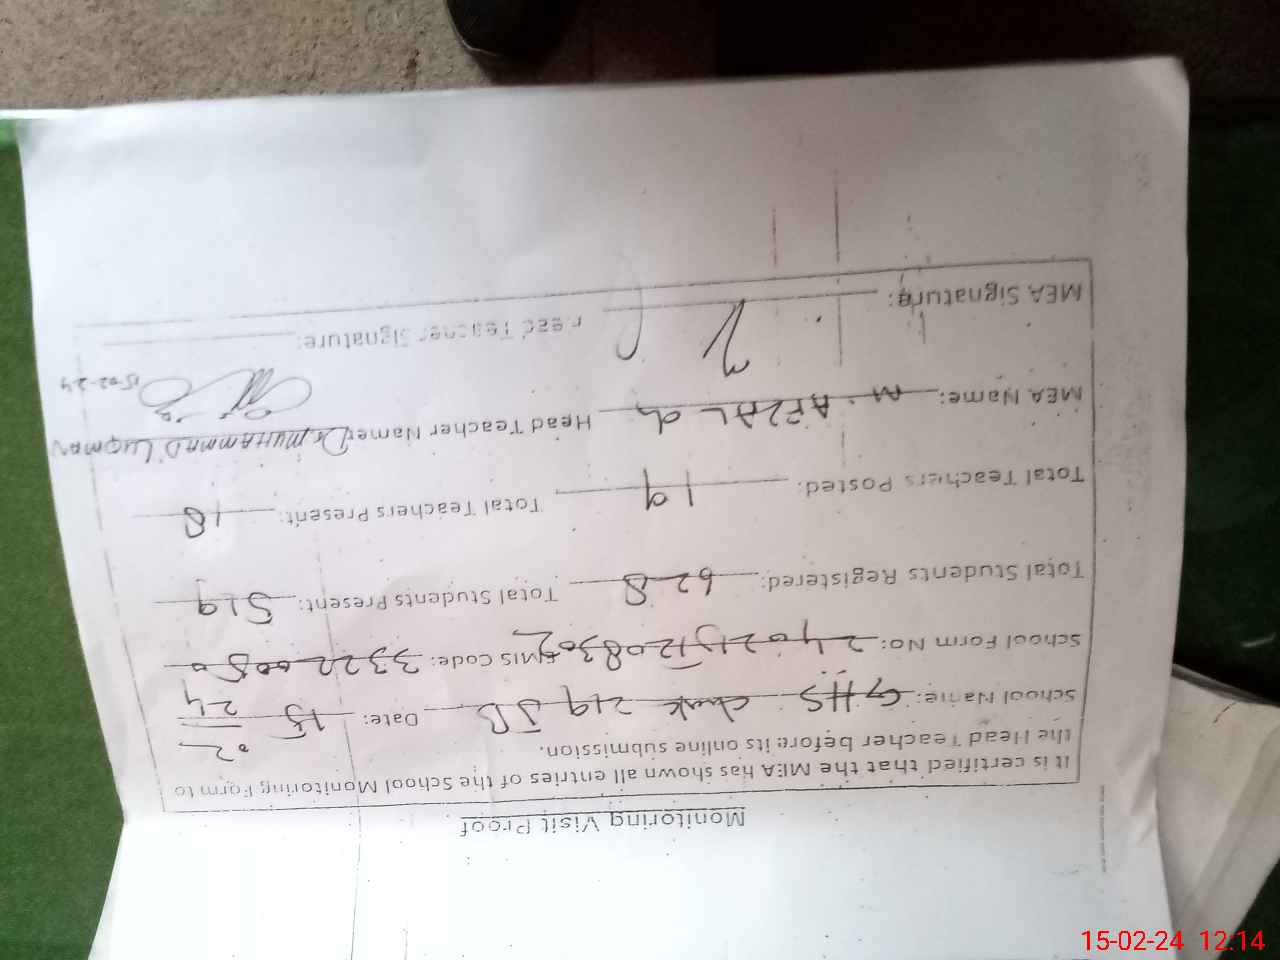 Monitoring Visit Proof
It is certified that the MEA has shown all entries of the School Monitoring Form to
the Head Teacher before its online submission.
School Name: GHS Chak 219 JB Date: 15 02 24
School Form No: EMIS Code: 33220050
Total Students Registered: 628 Total Students Present: 519
Total Teachers Posted: 19 Total Teachers Present: 18
MEA Name: M. AFZAL Head Teacher Name: Dr MUHAMMAD LUQMAN
15-02-24
MEA Signature: Head Teacher Signature:
15-02-24 12:14